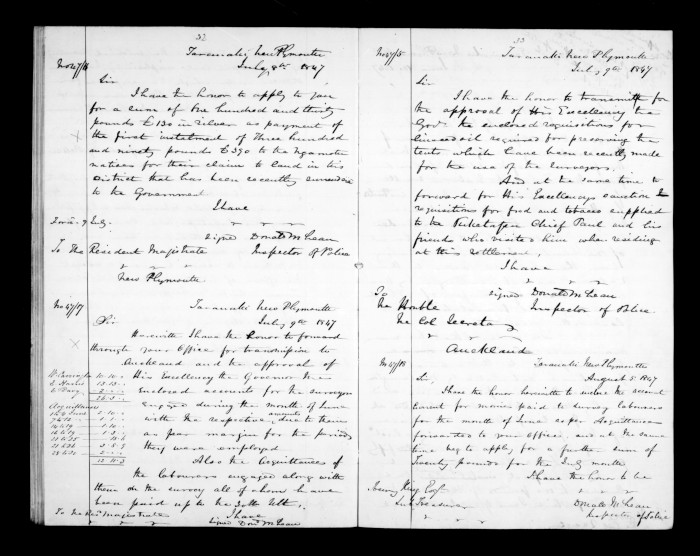 32
Taranaki New Plymouth
No 47/16 July 8th 1847
Sir
I have the honor to apply to you
for a sum of One hundred and thirty
pounds £130 in silver as payment of
the first instalment of Three hundred
and ninety pounds £390 to the Nga
natives for their claim to land in this
District that has been recently
to the Government
I have
9 July
signed Donald McLean
To The Resident Magistrate Inspector of Police
New Plymouth
No 47/17 Taranaki New Plymouth
July 9th 1847
Sir
Herewith I have the honor to forward
through your Office for transmission to
Auckland and the approval of
His Excellency the Governor the
enclosed accounts for the surveyors
engaged during the month of June
with the respective amounts due to them
as per margin for the periods
they were employed.
Also the Acquittances of
the labourers engaged along with
them on the survey all of whom have
been paid up to the 30th Ult.
I have
To the Resdt Magistrate
signed Dond McLean
Acquittances
33
Taranaki New Plymouth
July 9th 1847
Sir
I have the honor to transmit for
the approval of His Excellency the
Govr the enclosed requisitions for
linseed oil required for preserving the
tents which have been recently made
for the use of the surveyors.
And at the same time to
forward for His Excellencys sanction
requisitions for food and tobacco supplied
to the Chief Paul and his
friends who visited him when residing
at this settlement.
I have
signed Donald McLean
To Inspector of Police
The Honble
The Col Secretary
Auckland
No 47/18 Taranaki New Plymouth
August 5 1847
Sir,
I have the honor herewith to enclose the second
account for monies paid to survey labourers
for the month of June as per Acquittances
forwarded to your Office, and at the same
time beg to apply for a further sum of
Twenty pounds for the July month
I have the honor to be
King Esqr
Sub Treasurer
Donald McLean
Inspector of Police